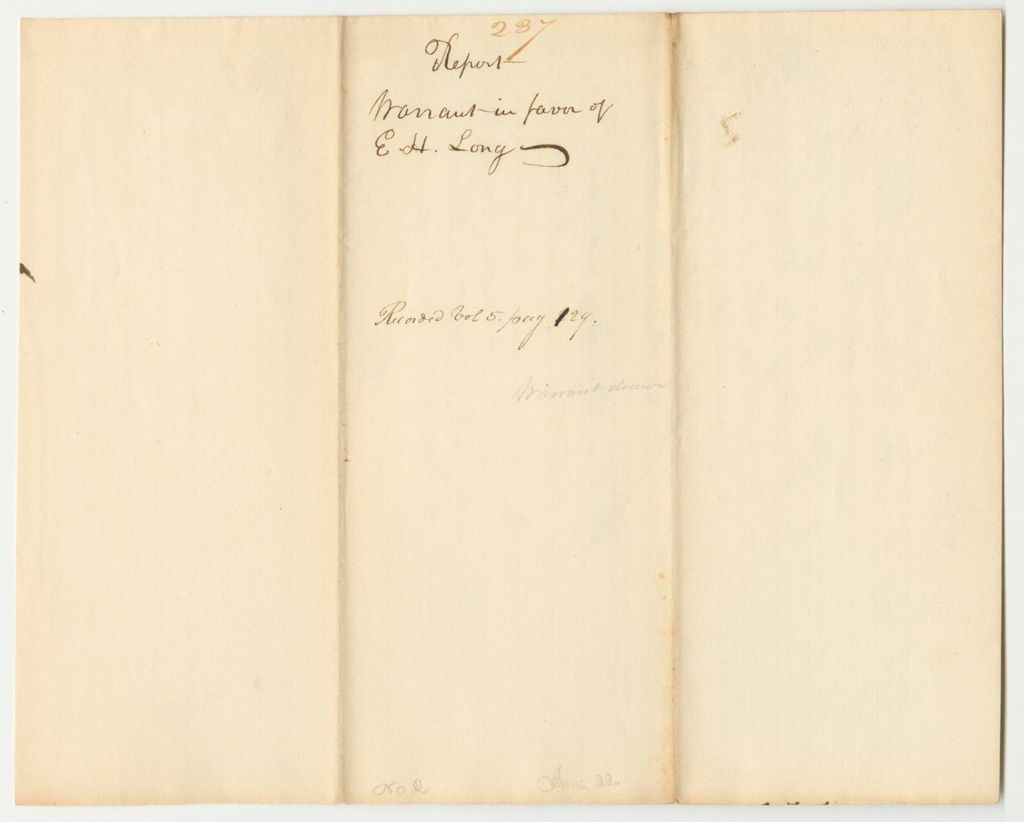 237
Report
Warrant in favor of
E. H. Long
Recorded Vol 5. pag 129.
Warrant drawn
June 22.